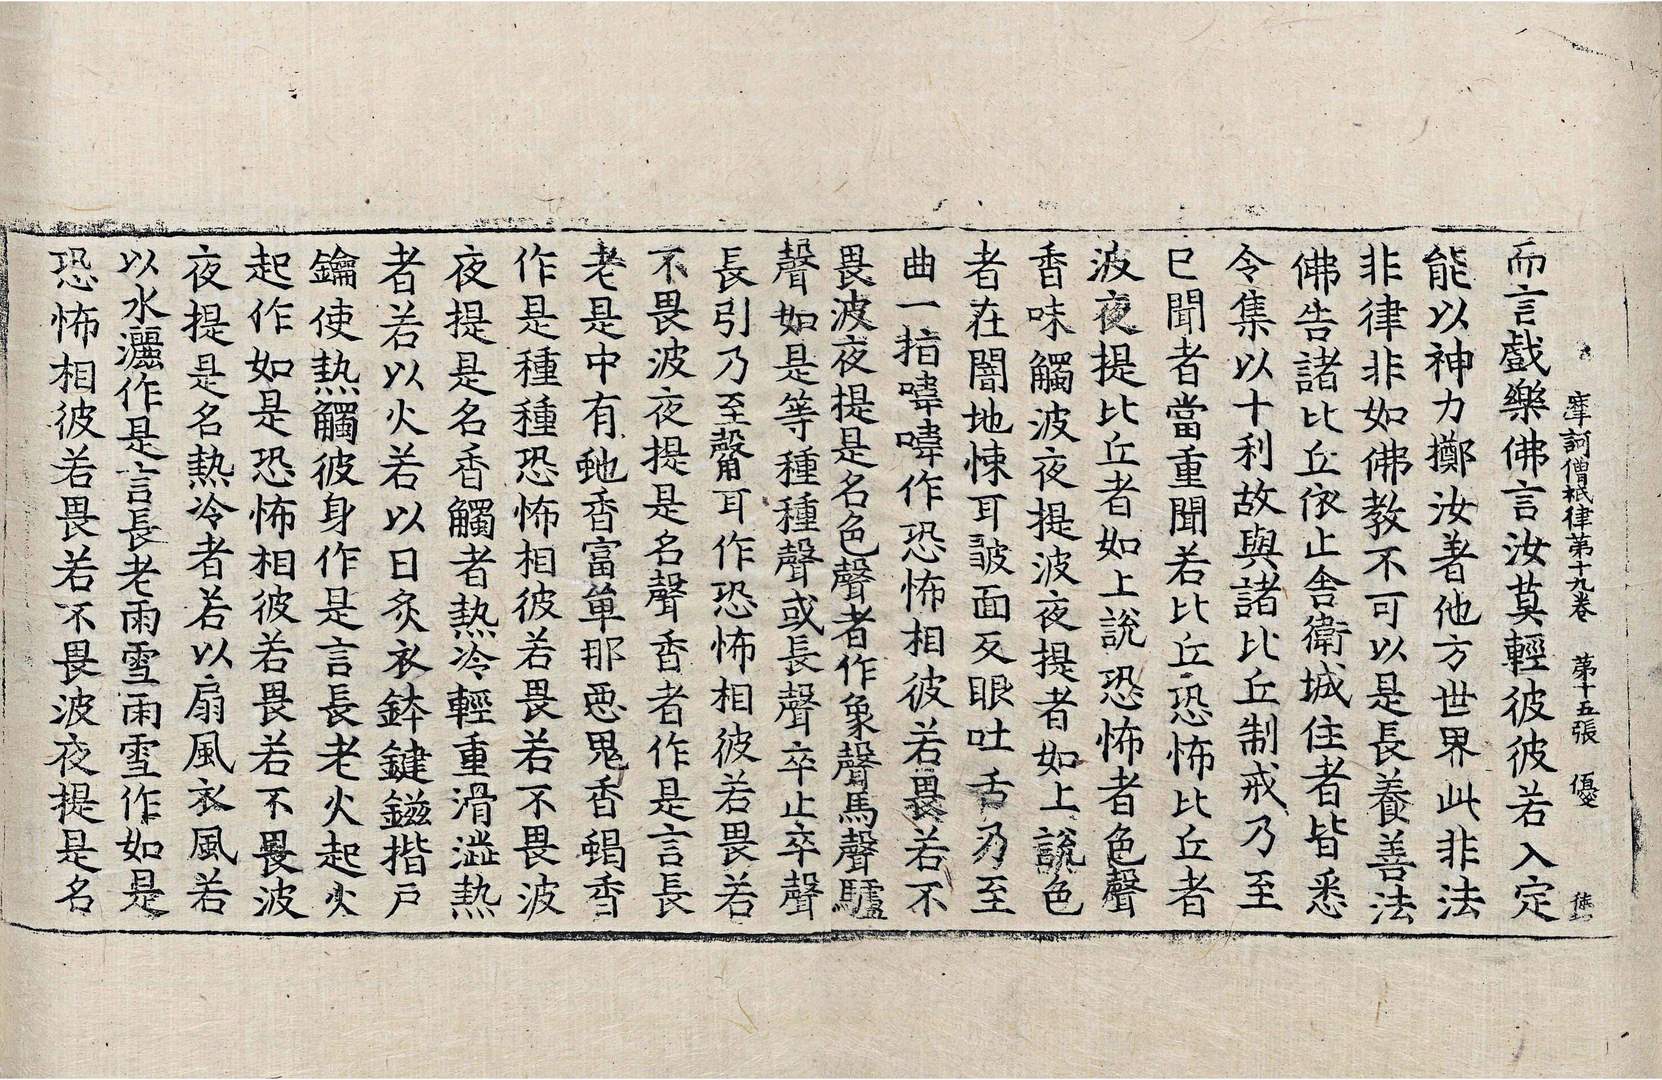 摩訶僧祇律第十九卷　第十五張　優
而言戲樂佛言汝莫輕彼彼若入定
能以神力擲汝著他方世界此非法
非律非如佛教不可以是長養善法
佛告諸比丘依止舍衛城住者皆悉
令集以十利故與諸比丘制戒乃至
已聞者當重聞若比丘恐怖比丘者
波夜提比丘者如上說恐怖者色聲
香味觸波夜提波夜提者如上說色
者在闇地悚耳皺面反眼吐舌乃至
曲一指嘊嘊作恐怖相彼若畏若不
畏波夜提是名色聲者作象聲馬聲驢
聲如是等種種聲或長聲卒止卒聲
長引乃至聲耳作恐怖相彼若畏若
不畏波夜提是名聲香者作是言長
老是中有虵香富單那惡鬼香蝎香
作是種種恐怖相彼若畏若不畏波
夜提是名香觸者熱冷輕重滑澁熱
者若以火若以日炙衣鉢鍵鎡揩戶
鑰使熱觸彼身作是言長老火起火
起作如是恐怖相彼若畏若不畏波
夜提是名熱冷者若以扇風衣風若
以水灑作是言長老雨雪雨雪作如是
恐怖相彼若畏若不畏波夜提是名